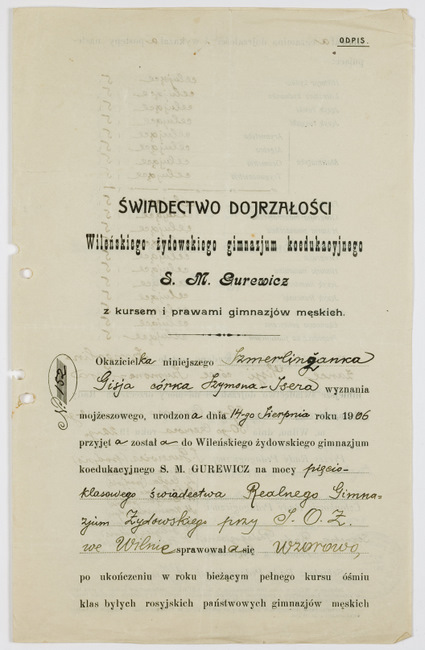 ODPIS.
ŚWIADECTWO DOJRZAŁOŚCI
Wileńskiego żydowskiego gimnazjum koedukacyjnego
S. M. Gurewicz
z kursem i prawami gimnazjów męskich.
Okazicielka niniejszego Szmerlinżanka
Gisja córka Szymona-Isera wyznania
mojżeszowego, urodzona dnia 14-go Sierpnia roku 1906
przyjęta została do Wileńskiego żydowskiego gimnazjum
№ 152
koedukacyjnego S. M. GUREWICZ na mocy pięcio-
klasowego świadectwa Realnego Gimna-
zjum Żydowskiego przy S. O. Z.
we Wilnie sprawowała się wzorowo,
po ukończeniu w roku bieżącym pełnego kursu ośmiu
klas byłych rosyjskich państwowych gimnazjów męskich